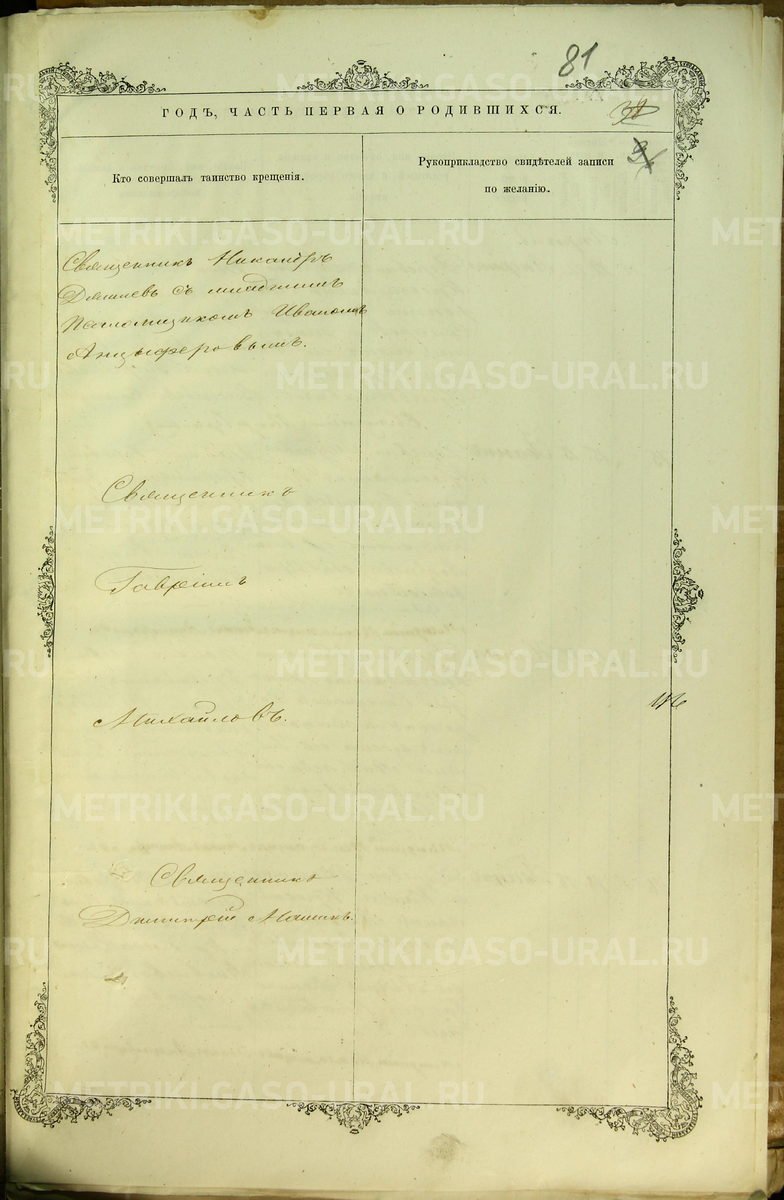 81
ГОДЪ, ЧАСТЬ ПЕРВАЯ О РОДИВШИХСЯ.
Кто совершалъ таинство крещенія.
Рукоприкладство свидѣтелей записи
по желанію.
Священникъ Никандръ
съ младшимъ
Псаломщикомъ Иваномъ
Анцыферовымъ.
Священникъ
Гавріилъ
Михайловъ.
Священникъ
Дмитрій
METRIKI.GASO-URAL.RU